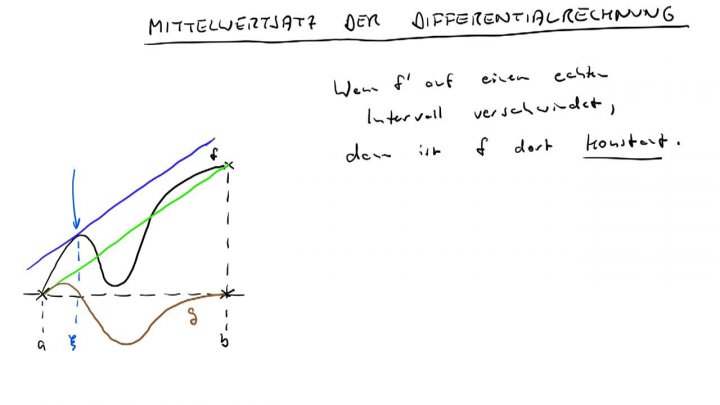 MITTELWERTSATZ DER DIFFERENTIALRECHNUNG
Wenn f' auf einem echten
Intervall verschwindet,
dann ist f dort konstant.
f
g
a
ξ
b